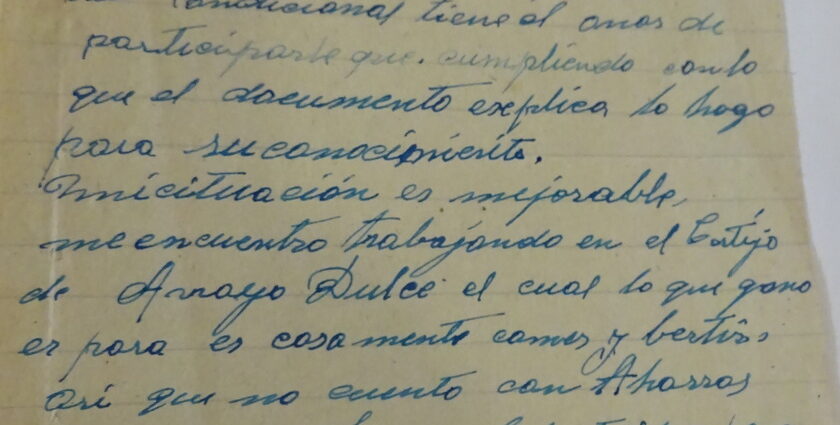 condicional tiene el onor de
participarle que. cumpliendo con lo
que el documento explica lo hago
para su conocimiento.
mi cituación es mejorable,
me encuentro trabajando en el Cortijo
de Arroyo Dulce el cual lo que gano
es para es casamente comer y bertir,
así que no cuento con Aharros